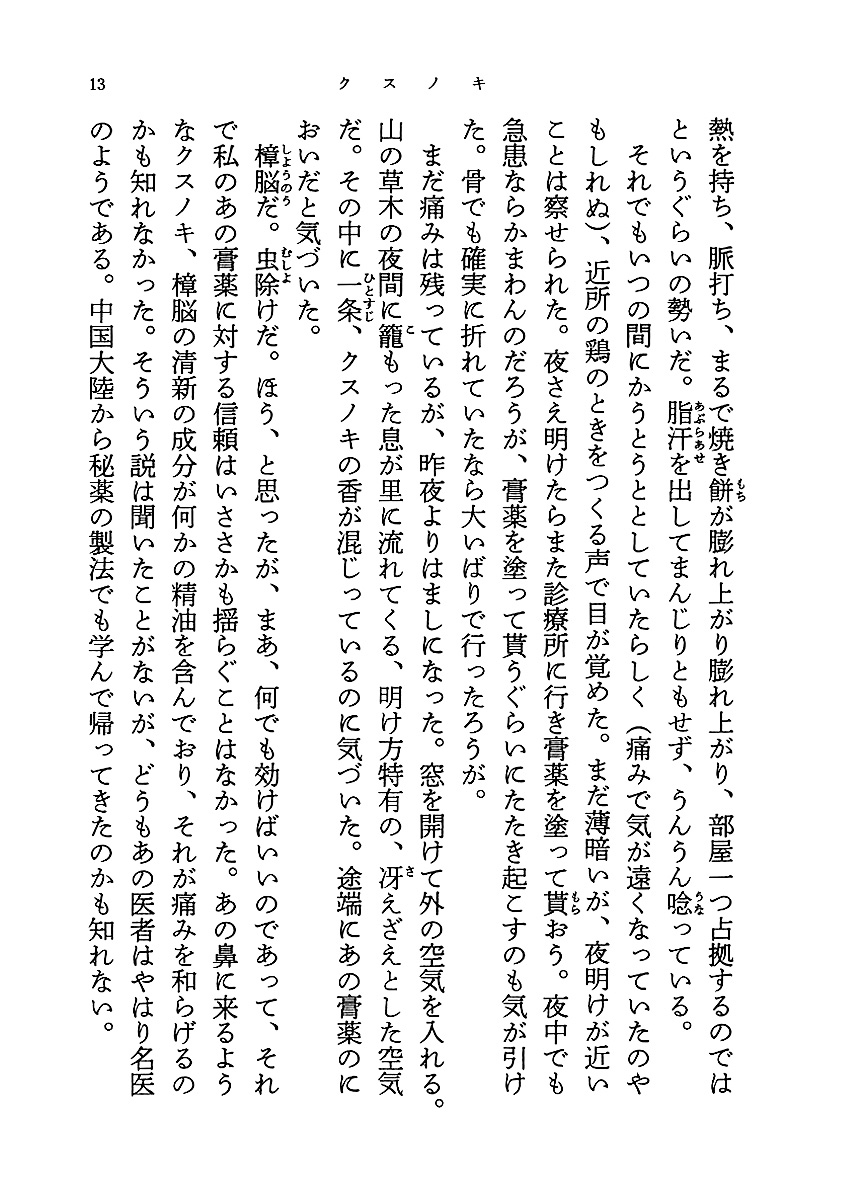 クスノキ
13
熱を持ち、脈打ち、まるで焼き餅が膨れ上がり膨れ上がり、部屋一つ占拠するのでは
というぐらいの勢いだ。脂汗を出してまんじりともせず、うんうん唸っている。
それでもいつの間にかうとうととしていたらしく(痛みで気が遠くなっていたのや
もしれぬ)、近所の鶏のときをつくる声で目が覚めた。まだ薄暗いが、夜明けが近い
ことは察せられた。夜さえ明けたらまた診療所に行き膏薬を塗って貰おう。夜中でも
急患ならかまわんのだろうが、膏薬を塗って貰うぐらいにたたき起こすのも気が引け
た。骨でも確実に折れていたなら大いばりで行ったろうが。
まだ痛みは残っているが、昨夜よりはましになった。窓を開けて外の空気を入れる。
山の草木の夜間に籠もった息が里に流れてくる、明け方特有の、冴えざえとした空気
だ。その中に一条、クスノキの香が混じっているのに気づいた。途端にあの膏薬のに
おいだと気づいた。
樟脳だ。虫除けだ。ほう、と思ったが、まあ、何でも効けばいいのであって、それ
で私のあの膏薬に対する信頼はいささかも揺らぐことはなかった。あの鼻に来るよう
なクスノキ、樟脳の清新の成分が何かの精油を含んでおり、それが痛みを和らげるの
かも知れなかった。そういう説は聞いたことがないが、どうもあの医者はやはり名医
のようである。中国大陸から秘薬の製法でも学んで帰ってきたのかも知れない。